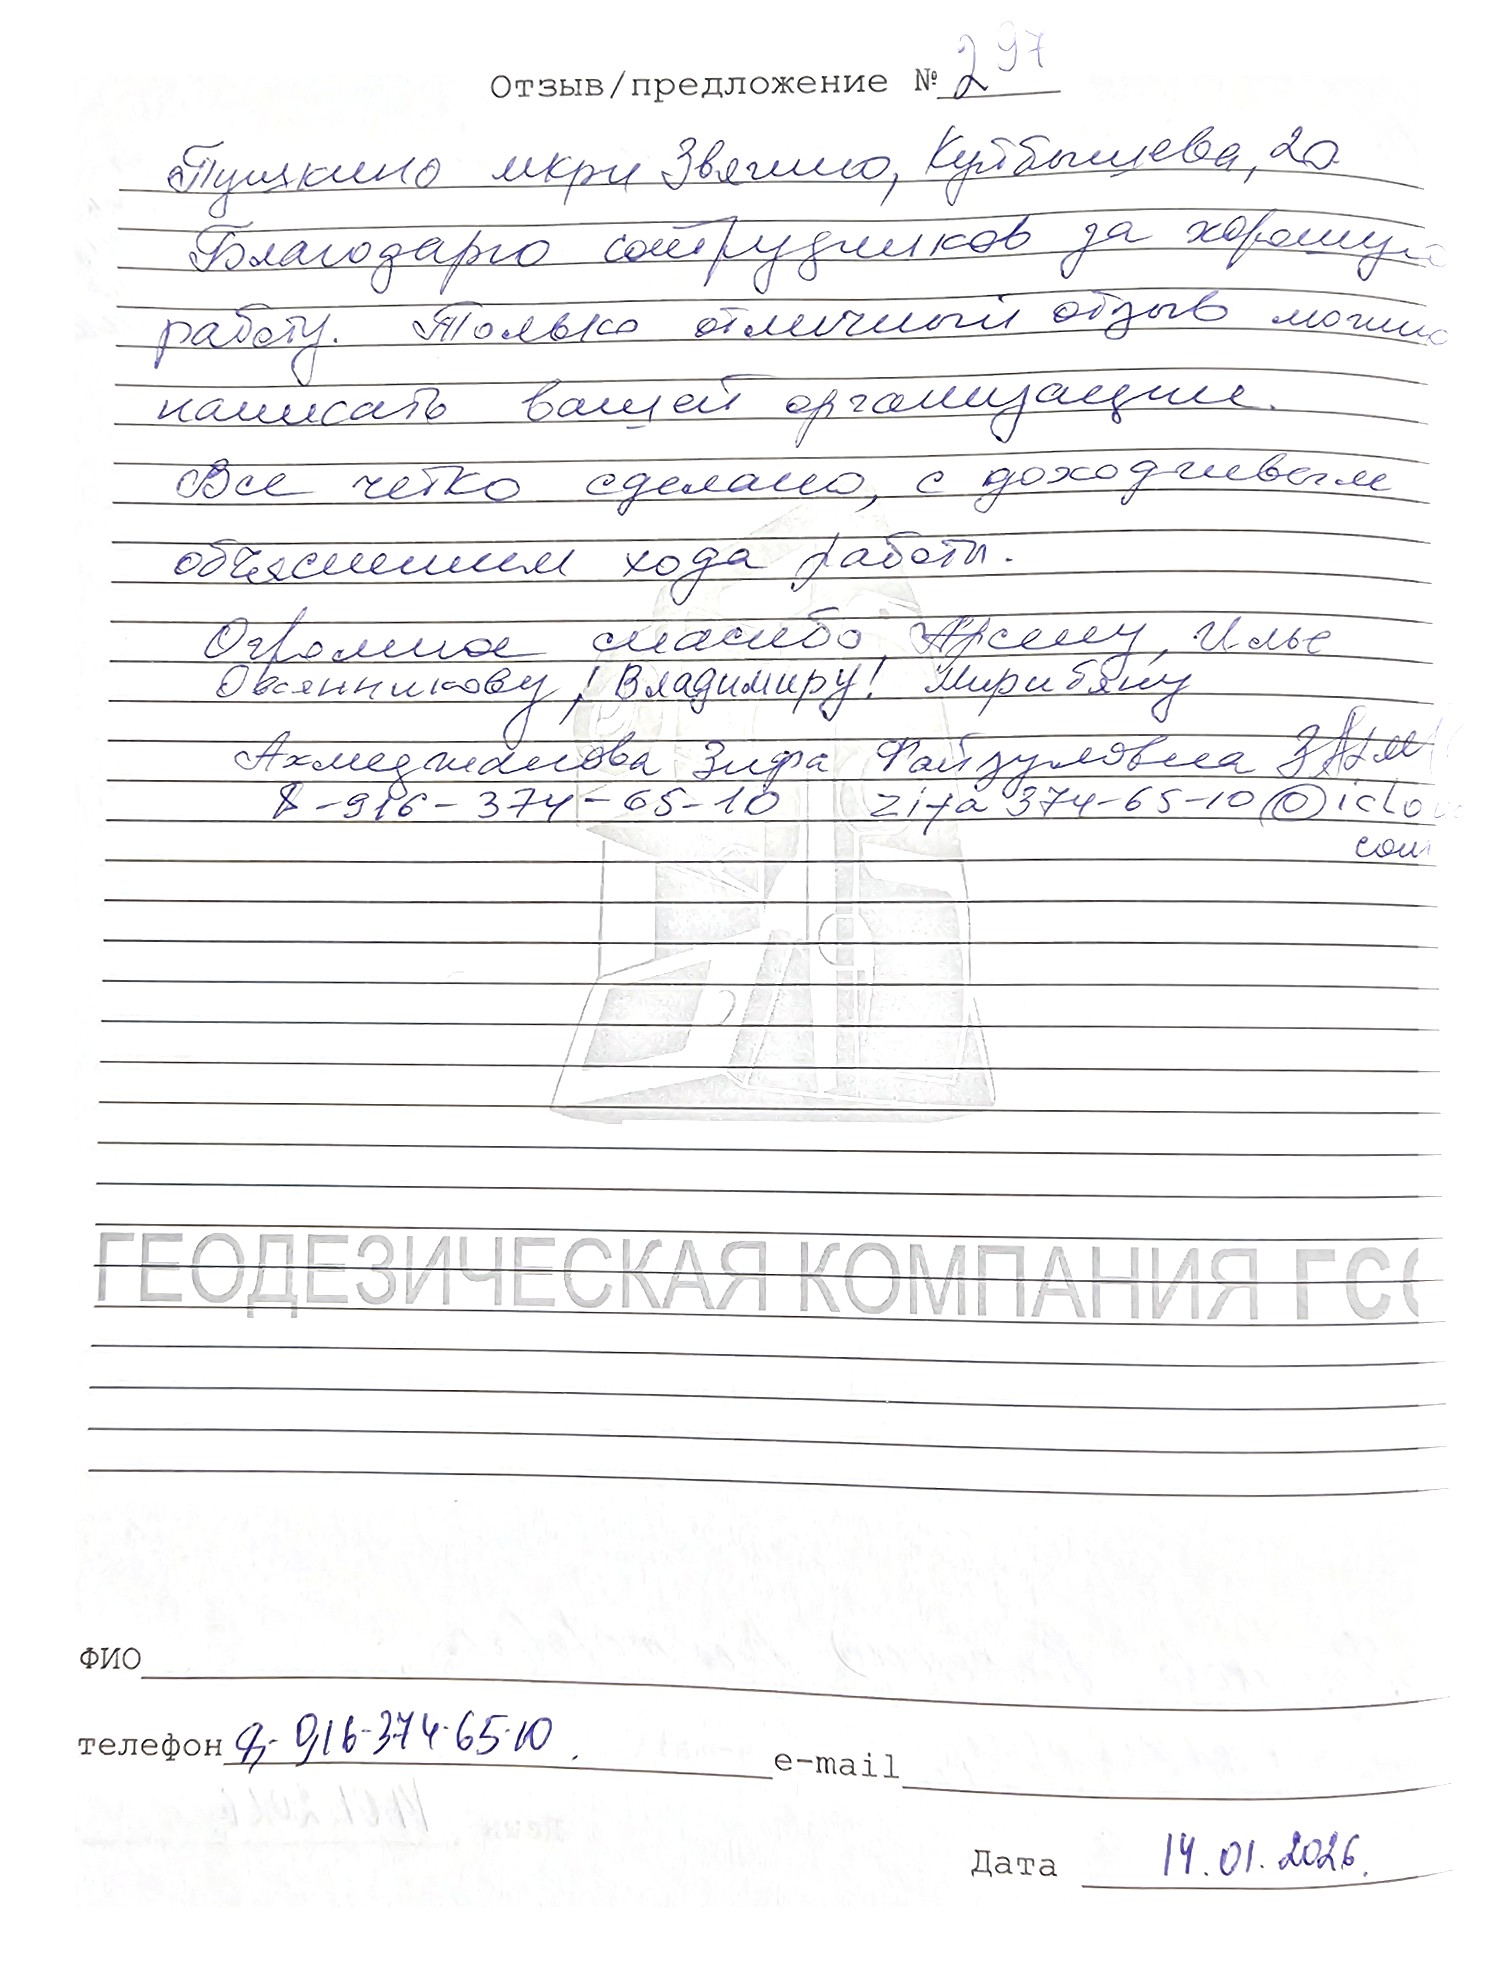 Отзыв/предложение № 297
Пушкино мкрн Звягино, Куйбышева, 20
Благодарю сотрудников за хорошую
работу. Только отличный отзыв можно
написать вашей организации.
Все четко сделано, с доходчивым
объяснением хода работы.
Огромное спасибо, Арсену, Илье
Овсянникову! Владимиру! Мирибяну
Ахмеджанова Зифа Файзуловна
8-916-374-65-10 zifa 374-65-10@iclou
com
ГЕОДЕЗИЧЕСКАЯ КОМПАНИЯ ГС
ФИО
телефон 8-916-374-65-10. e-mail
Дата 14.01.2026.